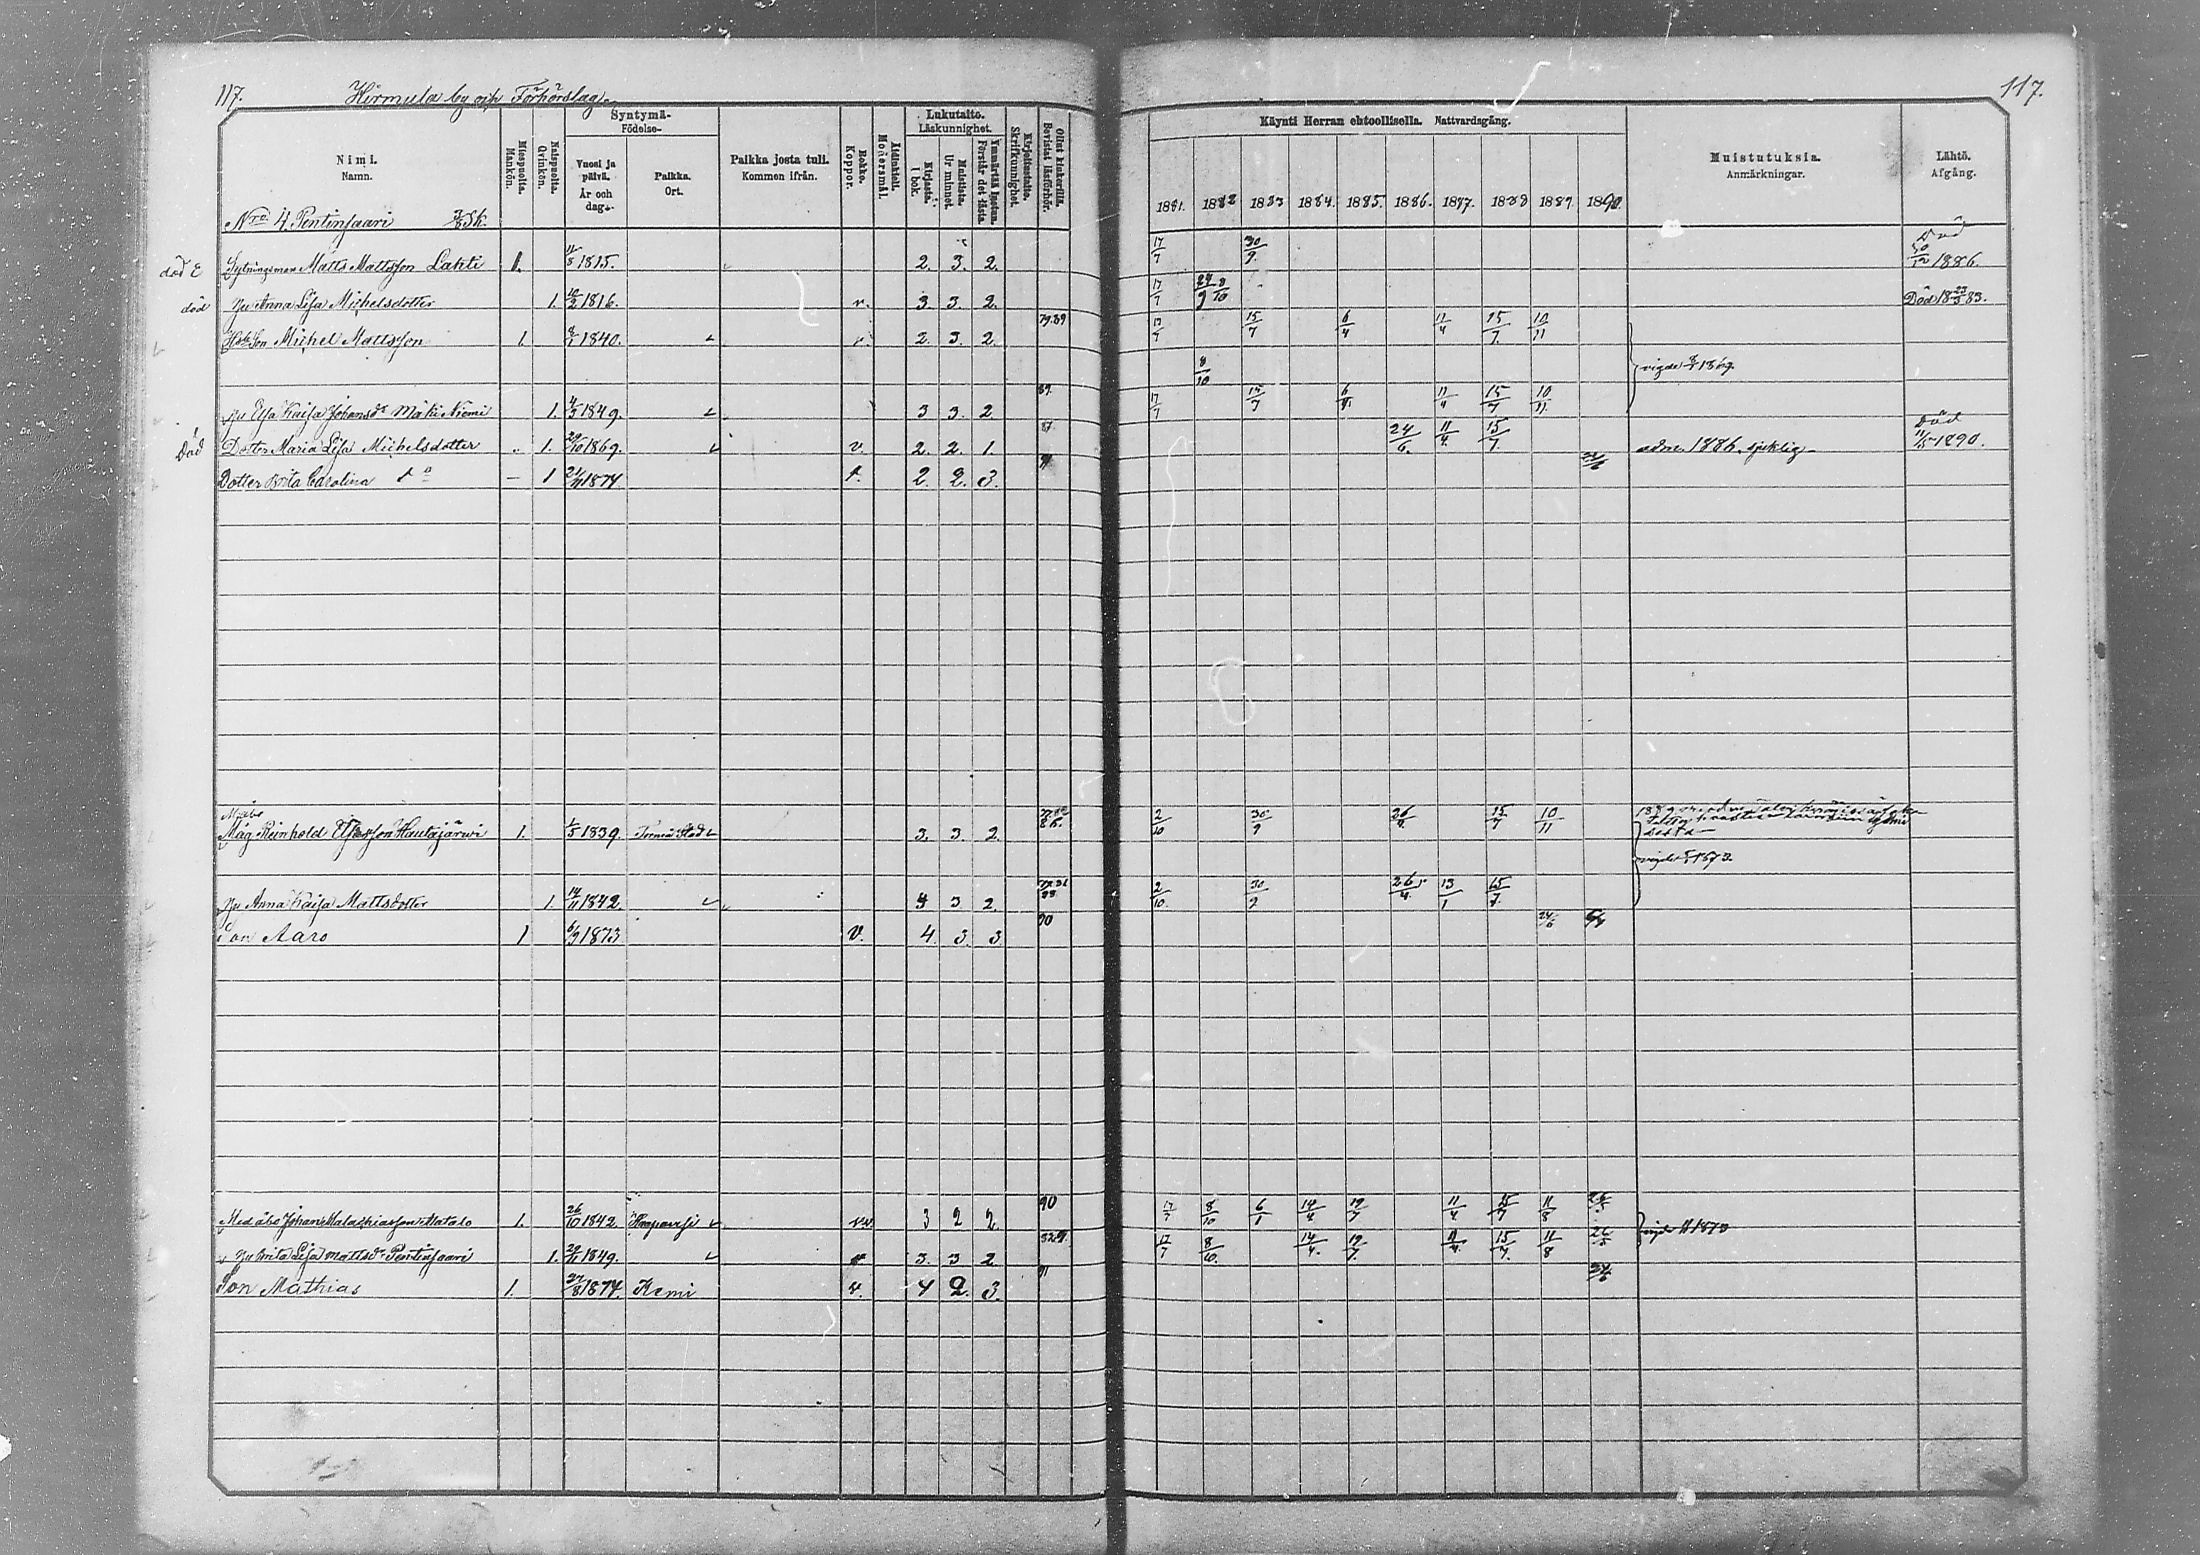 117. Hirmula by och Förhörslag.
117.
Nimi.
Namn.
Miespuolta.
Mankön.
Naispuolta.
Qvinkön.
Syntymä-
Födelse-
Vuosi ja päivä.
År och dag.
Paikka.
Ort.
Paikka josta tuli.
Kommen ifrån.
Rokko.
Koppor.
Äidinkieli.
Modersmål.
Lukutaito.
Läskunnighet.
Kirjasta.
I bok.
Muistista.
Ur minnet.
Ymmärtää luetun.
Förstår det lästa.
Kirjoitustaito.
Skrifkunnighet.
Ollut kinkerillä.
Bevistat läsförhör.
Käynti Herran ehtoollisella. Nattvardsgång.
1881. 1882 1883 1884. 1885. 1886. 1887. 1888 1889. 1890.
Muistutuksia.
Anmärkningar.
Lähtö.
Afgång.
Nro 4. Pentinsaari
död Sytningsman Matts Mattsson Lahti 1. 11/5 1815. 2. 3. 2. 17/7 30/9. Död 30/12 1886.
död Anna Lisa Michelsdotter 1. 10/2 1816. v. 3. 3. 2. 17/7 8/10 Död 18 23/3 83.
Son Michel Mattsson 1. 1840. v. 2. 3. 2. 79.89 17/7 15/7 6/4 11/4 15/7. 10/11
8/10 vigde 1869.
Elsa Kaisa Johansdr Mäki Niemi 1. 4/3 1849. 3 3. 2 89. 17/7 15/7 6/4. 11/4 15/7 10/11.
Död Dotter Maria Lisa Michelsdotter 1. 29/10 1869. v. 2. 2. 1. 87 24/6. 11/4. 15/7. adm. 1886. sjuklig Död 1890.
Dotter Brita Carolina do 1 21/11 1874 v. 2. 2. 3.
Måg Reinhold Hautajärwi 1. 1/5 1839. Torneå Stad 3. 3. 2. 2/10 30/9 26/4. 15/7 10/11
vigde 1873
Anna Kaisa Mattsdotter 1. 14/11 1842. 4 3. 2. 2/10. 30/9 26/4. 13/1 15/7.
Son Aaro 1 6/9 1873 v. 4. 3. 3 90
Johan Malachiasson Matala 1. 26/10 1842. 3 2 2. 90 17/7 8/10 6/1 14/4 19/7 11/4 15/7 11/8
Brita Lisa Mattsdr Pentinsaari 1. 29/11 1849. 3. 3 2 17/7 8/10. 14/4. 19/7. 11/4. 15/7. 11/8 vigde 1873
Son Mathias 1. 27/8 1874. Kemi v. 4 2. 3. 91